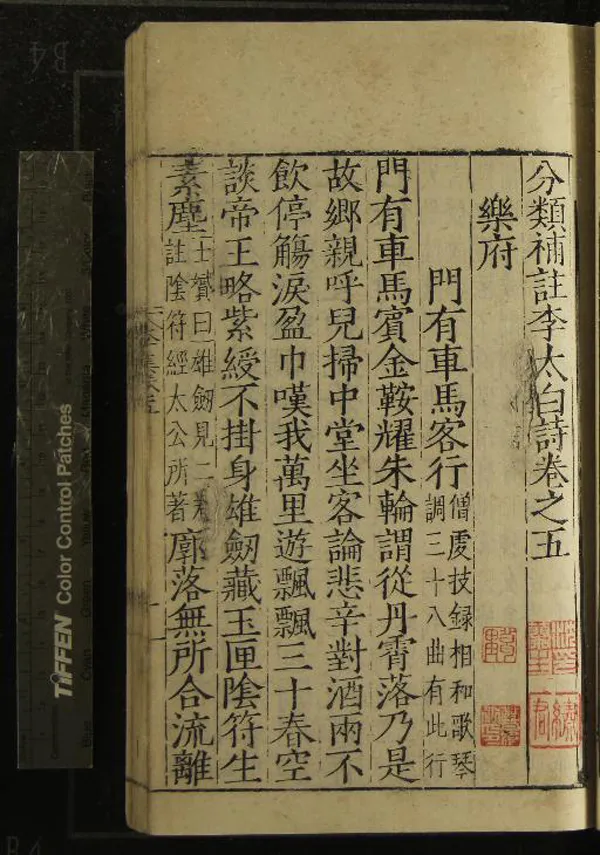 分類補註李太白詩卷之五
樂府
門有車馬客行
僧䖍技録相和歌琴
調三十八曲有此行
門有車馬賓金鞍耀朱輪謂從丹霄落乃是
故鄉親呼兒掃中堂坐客論悲辛對酒兩不
飲停觴淚盈巾嘆我萬里遊飄飄三十春空
談帝王略紫綬不掛身雄劒藏玉匣陰符生
素塵
士贇曰雄劒見二卷
註陰符經太公所著
廓落無所合流離
TIFFEN Color Control Patches